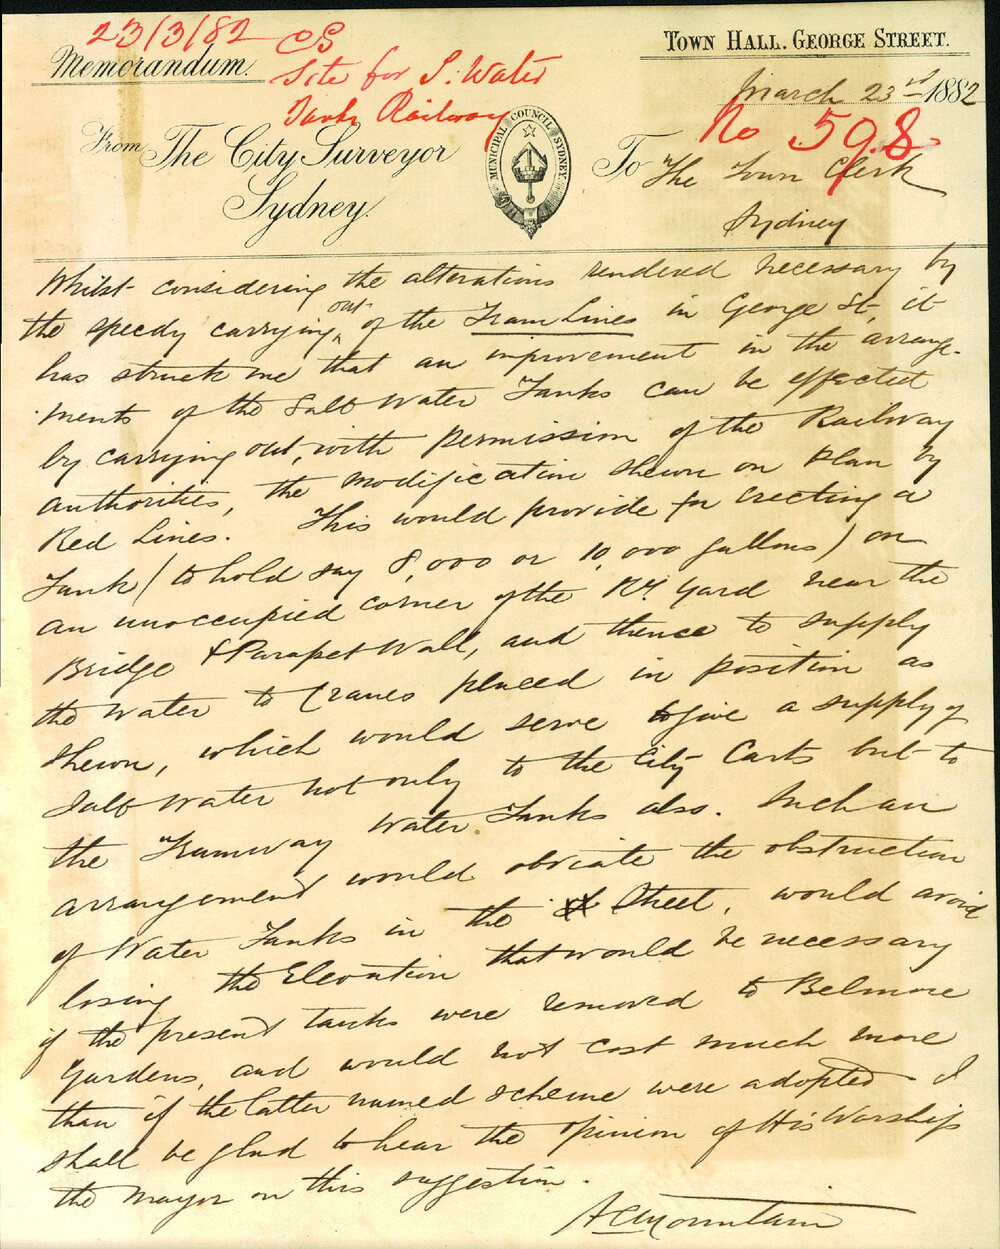 23/3/82 CS
Memorandum.
Site for S. Water
Tanks Railway
TOWN HALL. GEORGE STREET.
March 23rd 1882
No 598
From The City Surveyor
Sydney.
MUNICIPAL COUNCIL SYDNEY
To The Town Clerk
Sydney
Whilst considering the alterations rendered necessary by
the speedy carrying out of the Tram Lines in George St, it
has struck me that an improvement in the arrange-
ments of the Salt Water Tanks can be effected
by carrying out, with permission of the Railway
authorities, the modification shewn on plan by
Red Lines. This would provide for erecting a
Tank (to hold say 8,000 or 10,000 gallons) on
an unoccupied corner of the Ry Yard near the
Bridge & Parapet Wall, and thence to supply
the water to Cranes placed in position as
shewn, which would serve to give a supply of
Salt Water not only to the City Carts but to
the Tramway Water Tanks also. Such an
arrangement would obviate the obstruction
of Water Tanks in the Street, would avoid
losing the Elevation that would be necessary
if the present tanks were removed to Belmore
Gardens, and would not cost much more
than if the latter named scheme were adopted. I
shall be glad to hear the opinion of His Worship
the Mayor on this suggestion.
A C Mountain